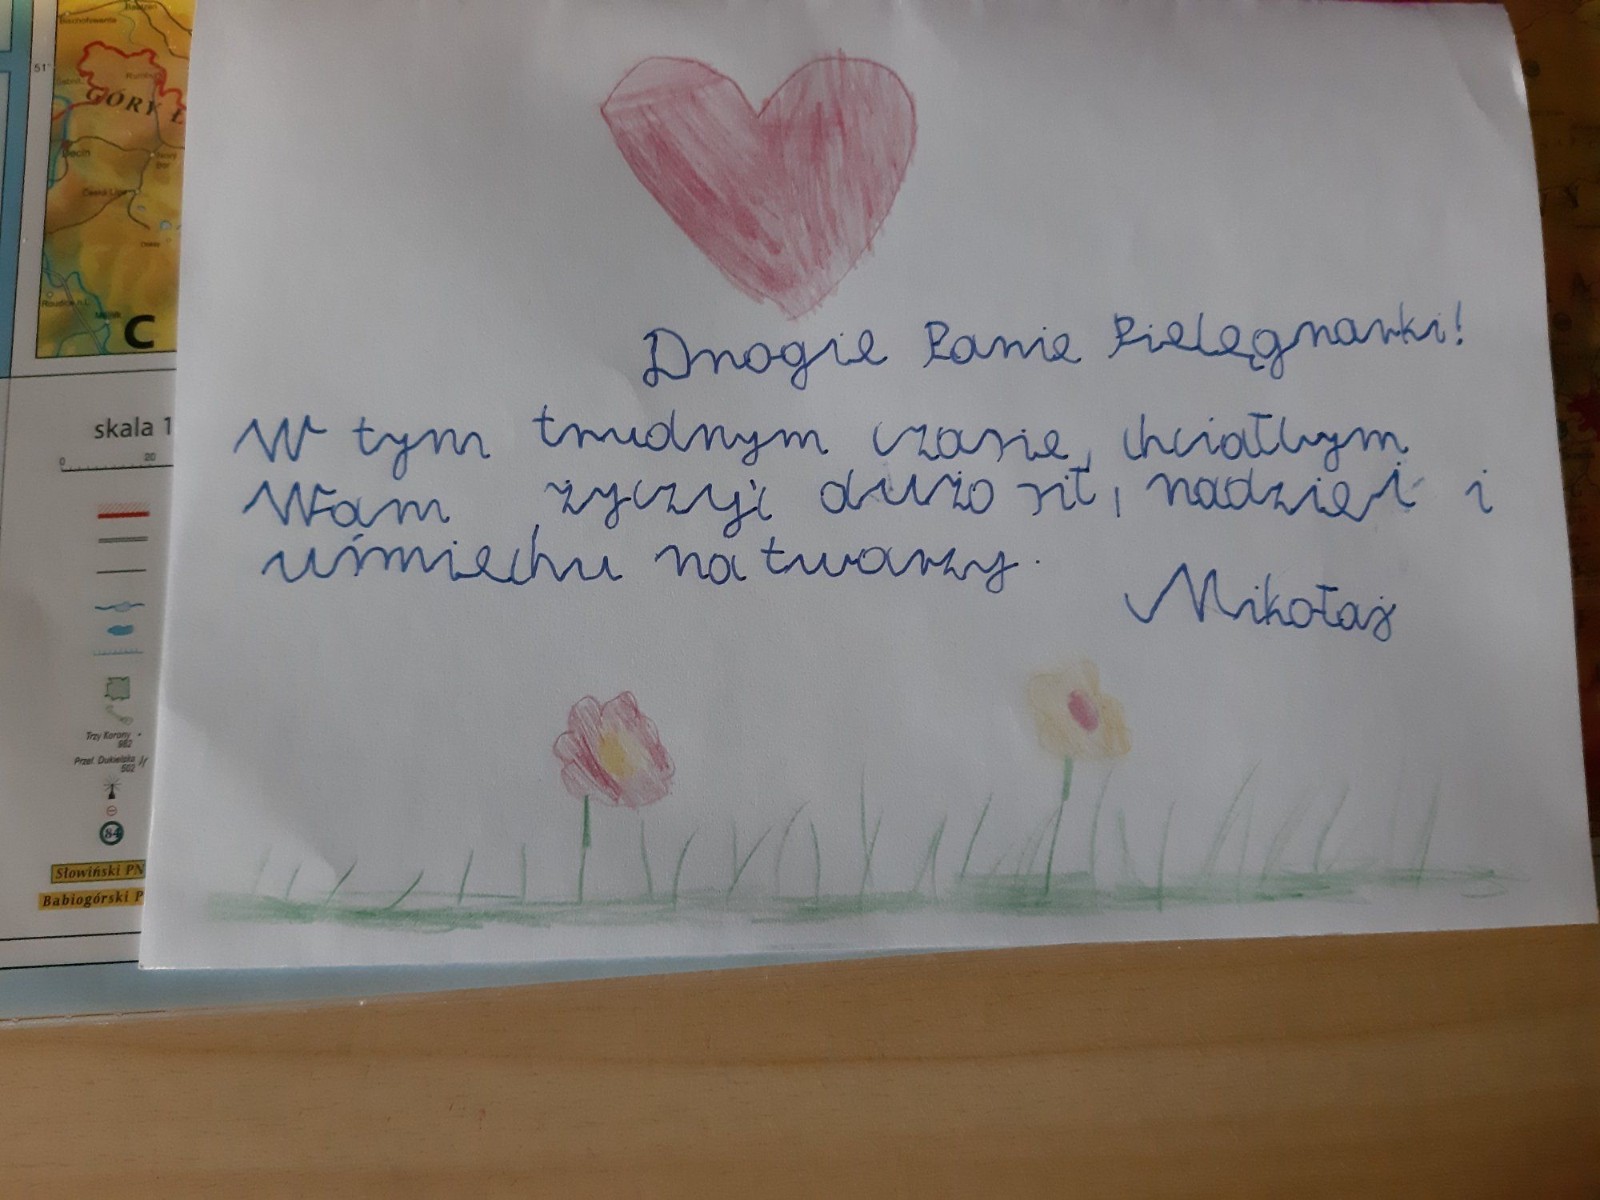 Drogie Panie Pielęgnarki!
W tym trudnym czasie, chciałbym
Wam życzyć dużo sił, nadziei i
uśmiechu na twarzy.
Mikołaj
51°
GÓRY Ł
Děčín
Česká Lípa
Roudnice n.L.
Mělník
C
skala 1
0 20
Trzy Korony
982
Przeł. Dukielska
502
84
Słowiński PN
Babiogórski P